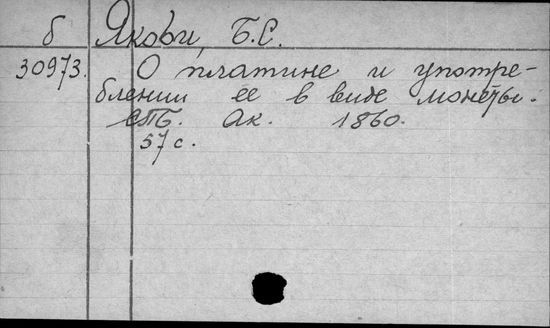 б Якоби, Б.С.
30973. О платине и употре-
блении ее в виде монеты.
СПБ. Ак. 1860.
57 с.